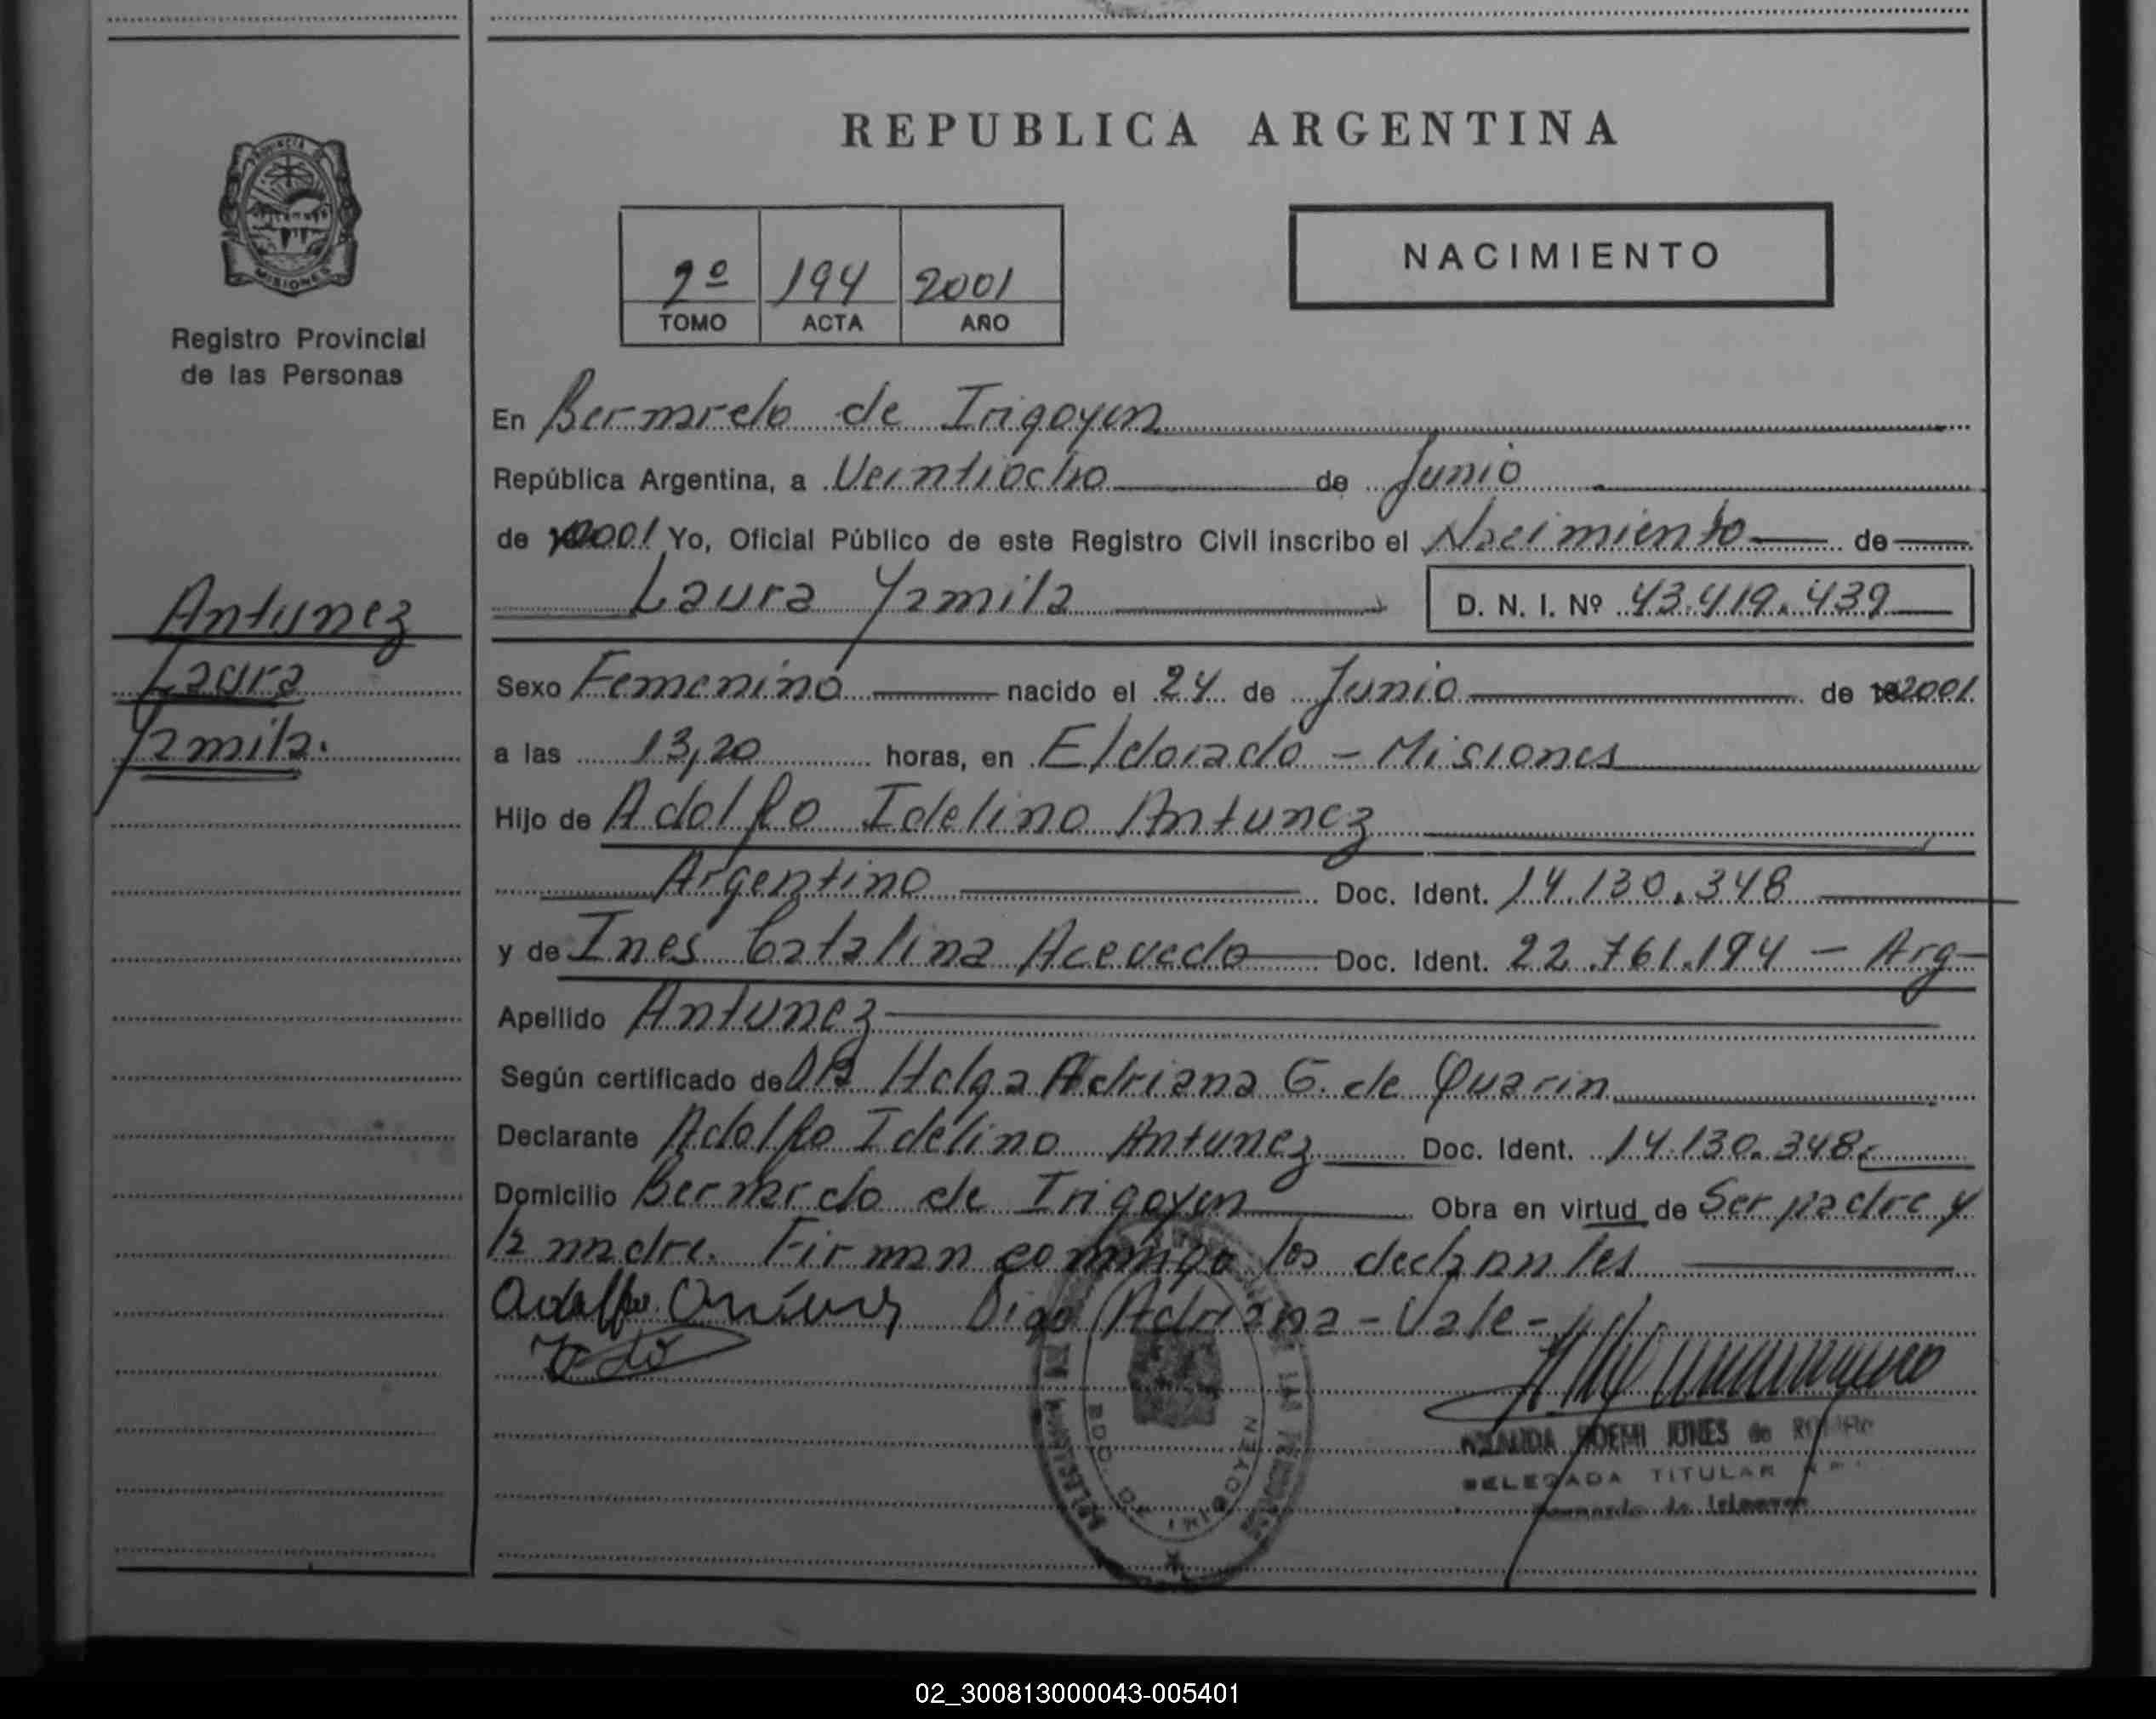 REPUBLICA ARGENTINA
PROVINCIA DE
MISIONES
Registro Provincial
de las Personas
2º 194 2001
TOMO ACTA AÑO
NACIMIENTO
En Bernardo de Irigoyen
República Argentina, a Veintiocho de Junio
de 2001 Yo, Oficial Público de este Registro Civil inscribo el Nacimiento de
Laura Yamila D. N. I. Nº 43.419.439
Antunez
Laura
Yamila.
Sexo Femenino nacido el 24 de Junio de 2001.
a las 13,20 horas, en Eldorado - Misiones
Hijo de Adolfo Idelino Antunez
Argentino Doc. Ident. 14.130.348
y de Ines Catalina Acevedo Doc. Ident. 22.761.194 - Arg
Apellido Antunez
Según certificado de DRA Helga Adriana G. de Quarin
Declarante Adolfo Idelino Antunez Doc. Ident. 14.130.348
Domicilio Bernardo de Irigoyen Obra en virtud de Ser padre y
la madre. Firman conmigo los
Adolfo Digo Adriana - Vale -
BDO. DE IRIGOYEN
NOEMI JONES de
DELEGADA TITULAR
Bernardo de Irigoyen
02_300813000043-005401